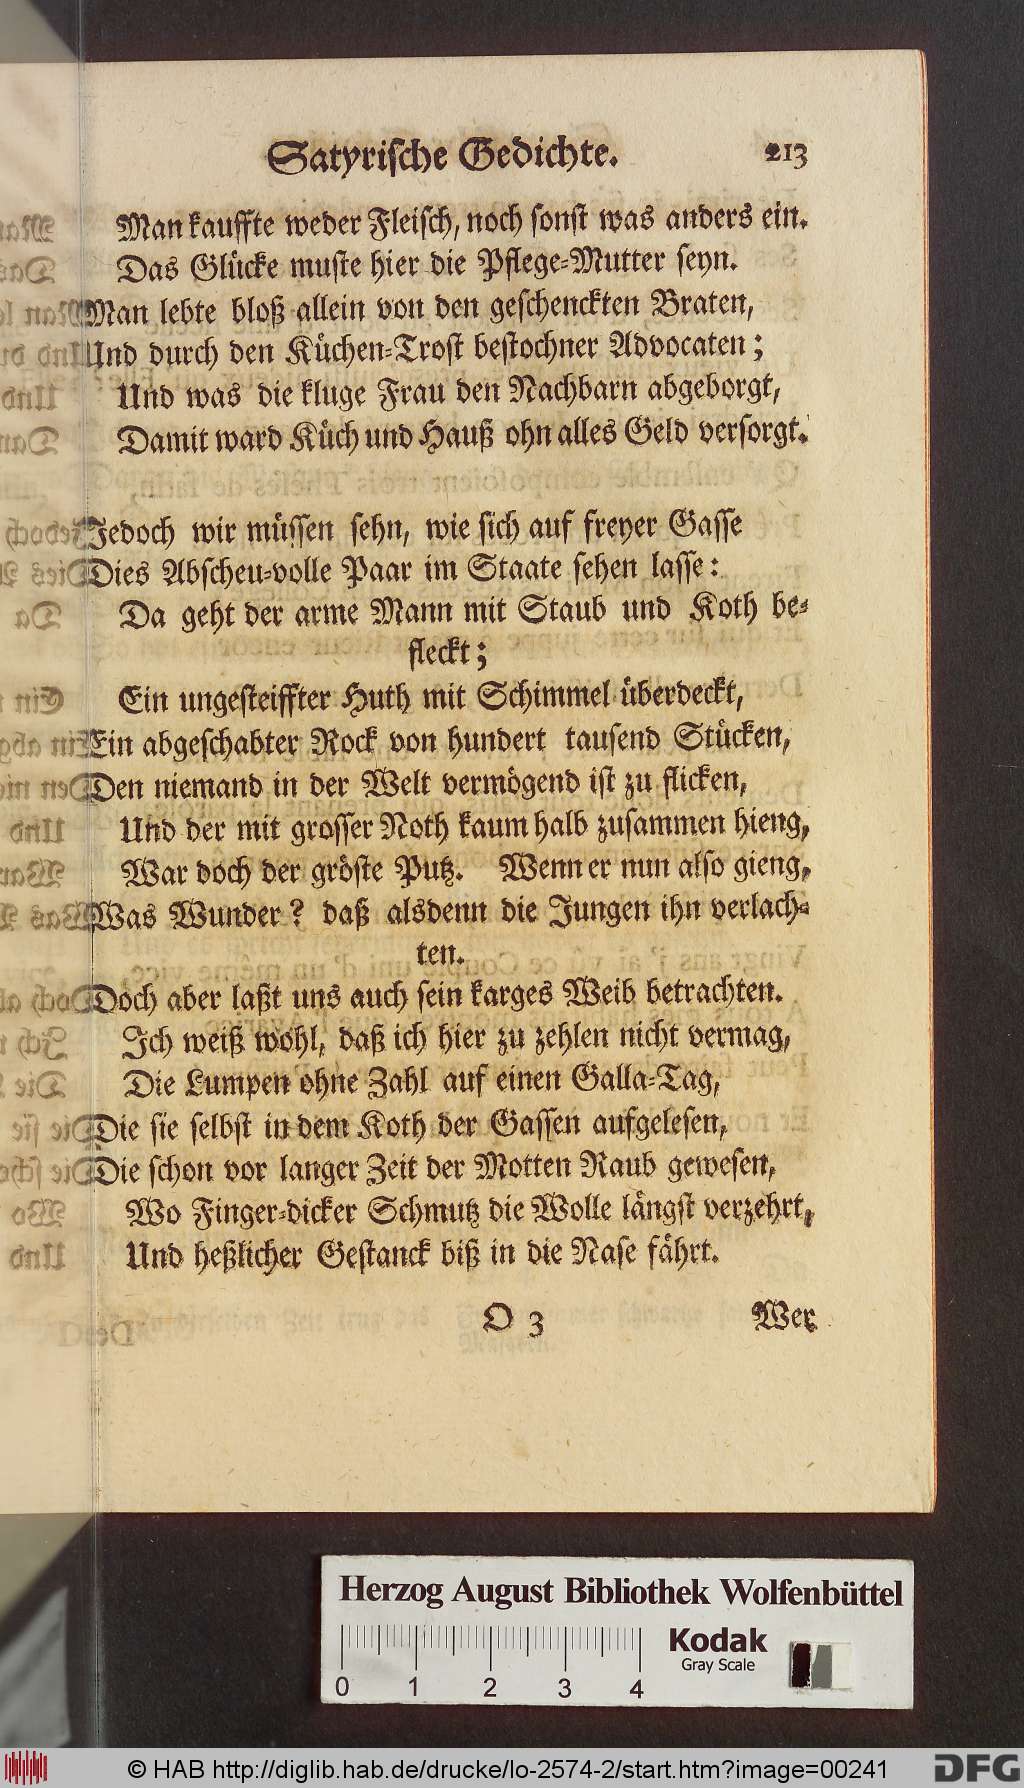 Satyrische Gedichte. 213
Man kauffte weder Fleisch, noch sonst was anders ein.
Das Glücke muste hier die Pflege-Mutter seyn.
Man lebte bloß allein von den geschenckten Braten,
Und durch den Küchen-Trost bestochner Advocaten;
Und was die kluge Frau den Nachbarn abgeborgt,
Damit ward Küch und Hauß ohn alles Geld versorgt.
Jedoch wir müssen sehn, wie sich auf freyer Gasse
Dies Abscheu-volle Paar im Staate sehen lasse:
Da geht der arme Mann mit Staub und Koth be-
fleckt;
Ein ungesteiffter Huth mit Schimmel überdeckt,
Ein abgeschabter Rock von hundert tausend Stücken,
Den niemand in der Welt vermögend ist zu flicken,
Und der mit grosser Noth kaum halb zusammen hieng,
War doch der gröste Putz. Wenn er nun also gieng,
Was Wunder? daß alsdenn die Jungen ihn verlach-
ten.
Doch aber laßt uns auch sein karges Weib betrachten.
Ich weiß wohl, daß ich hier zu zehlen nicht vermag,
Die Lumpen ohne Zahl auf einen Galla-Tag,
Die sie selbst in dem Koth der Gassen aufgelesen,
Die schon vor langer Zeit der Motten Raub gewesen,
Wo Finger-dicker Schmutz die Wolle längst verzehrt,
Und heßlicher Gestanck biß in die Nase fährt.
O 3 Wer
Herzog August Bibliothek Wolfenbüttel
Kodak
Gray Scale
0 1 2 3 4
© HAB http://diglib.hab.de/drucke/lo-2574-2/start.htm?image=00241
DFG